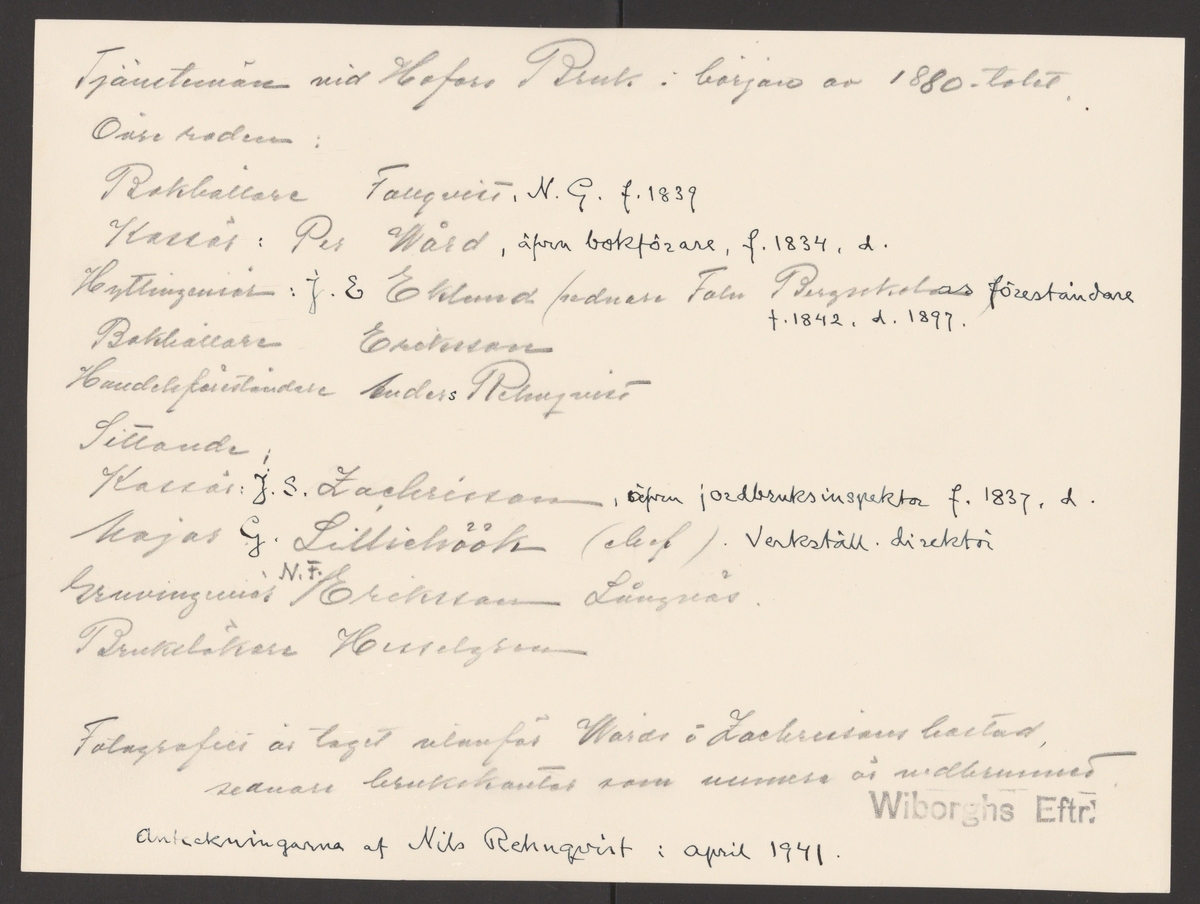 Tjänstemän vid Hofors Bruk i början av 1880-talet.
Övre raden:
Bokhållare Fallqvist, N. G. f. 1839
Kassör: Per Wård, äfven bokförare, f. 1834, d.
Hyttingeniör: J. E Eklund (sednare Falu Bergsskolas föreståndare
f. 1842, d. 1897.
Bokhållare Eriksson
Handelsföreståndare Anders Rehnqvist
Sittande:
Kassör: J. S. Zachrisson, äfven jordbruksinspektor f. 1837, d.
Major G. Lilliehöök (chef). Verkställ. direktör
Gruvingeniör N. F. Eriksson Långnäs.
Bruksläkare Hesselgren
Fotografiet är taget utanför Wårds o Zachrissons bostad,
sednare brukskontor som numera är nedbrunnet
Wiborghs Eftr.
Anteckningarna af Nils Rehnqvist i april 1941.